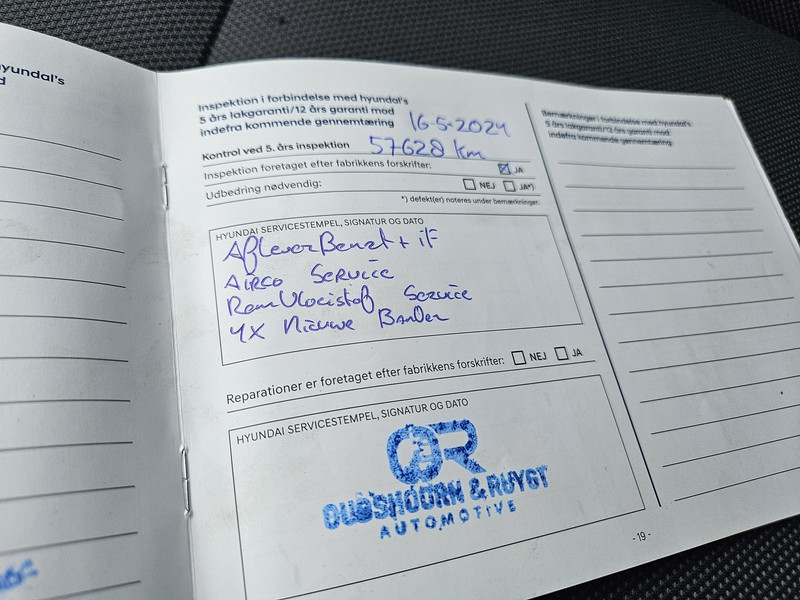 hyundai's
d
Inspektion i forbindelse med hyundai's
5 års lakgaranti/12 års garanti mod
indefra kommende gennemtæring
16-5-2024
Kontrol ved 5. års inspektion
57628 km
Inspektion foretaget efter fabrikkens forskrifter:
JA
Udbedring nødvendig:
NEJ
JA*)
*) defekt(er) noteres under bemærkninger.
HYUNDAI SERVICESTEMPEL, SIGNATUR OG DATO
Airco Service
RemVloeistof Service
4x Nieuwe Banden
Reparationer er foretaget efter fabrikkens forskrifter:
NEJ
JA
HYUNDAI SERVICESTEMPEL, SIGNATUR OG DATO
OR
OUDSHOORN & RUYGT
AUTOMOTIVE
-19-
Bemærkninger i forbindelse med hyundai's
5 års lakgaranti/12 års garanti mod
indefra kommende gennemtæring